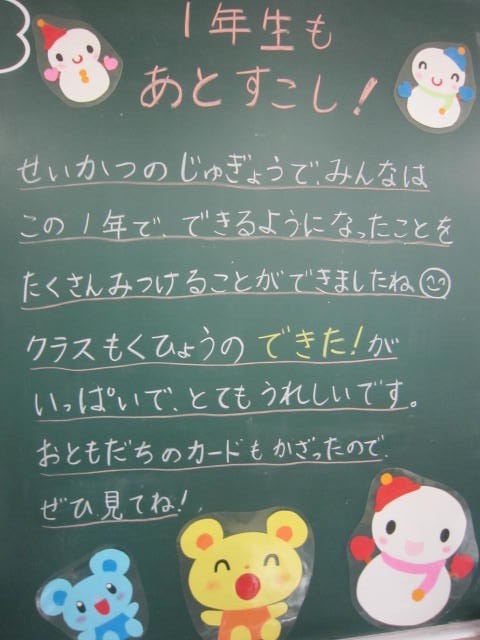 1年生も
あとすこし！
せいかつのじゅぎょうで、みんなは
この1年で、できるようになったことを
たくさんみつけることができましたね
クラスもくひょうのできた！が
いっぱいで、とてもうれしいです。
おともだちのカードもかざったので
ぜひ見てね！